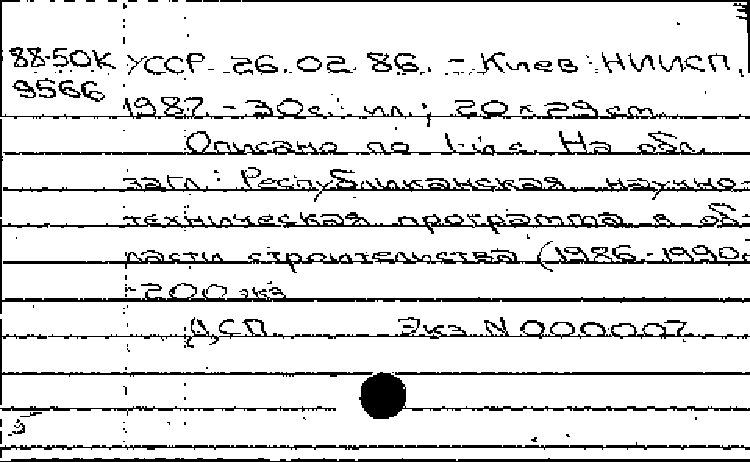 88-50К УССР 26.02.86. - Киев: НИИСП,
9566
1987. - 30с.: ил.; 20х29см.
Описано по 1-й с. На обл.
загл.: Республиканская научно-
техническая программа в об-
ласти строительства (1986-1990г
-200 экз
ДСП. Экз N 000007